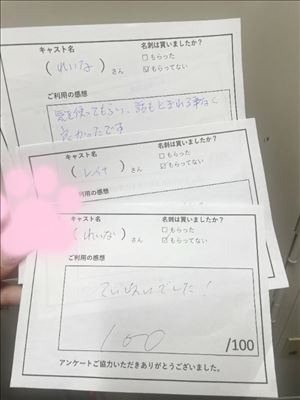 キャスト名
(れいな)さん
名刺は貰いましたか?
□もらった
☑もらってない
ご利用の感想
気を使ってもらい、話もとぎれる事なく
良かったです
キャスト名
(レイナ)さん
名刺は貰いましたか?
□もらった
☑もらってない
ご利用の感想
キャスト名
(れいな)さん
名刺は貰いましたか?
□もらった
☑もらってない
ご利用の感想
ていねいでした!
100
/100
アンケートご協力いただきありがとうございました。